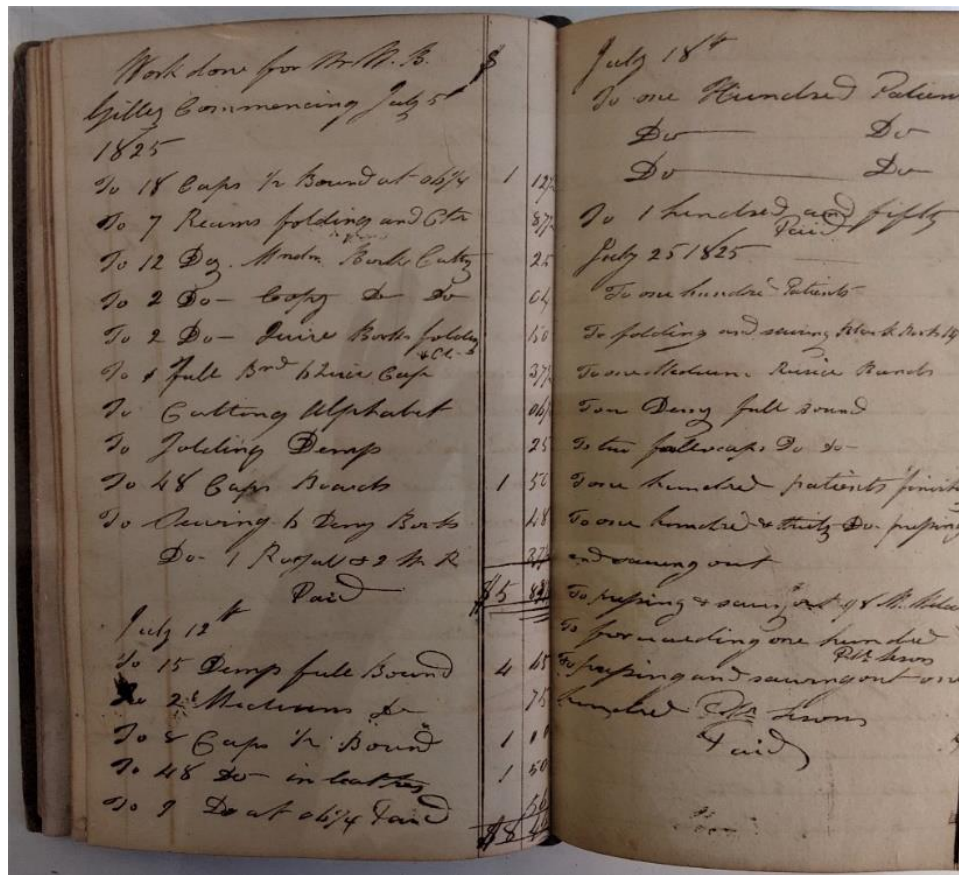 Work done for Mr W. B. $
Gilley Commencing July 5th
1825
To 18 Caps 1/2 Bound at 06 1/4 1 12 1/2
To 7 Reams folding and Ctn 87 1/2
To 12 Doz. Book Cutty 25
To 2 Do - Copy Do Do 04
To 2 Do - Quire Books folding 150
& Ct
To 1 full Bnd 6 Quire Cap 37 1/2
To Cutting Alphabet 06 1/4
To folding Demy 25
To 48 Caps Boards 1 50
To Sewing 6 Demy Books 48
Do - 1 Royal & 2 M R 37 1/2
Paid $5 83
July 12th
To 15 Demy full Bound 4 45
To 2 Mediums Do 75
To 8 Caps 1/2 Bound 1 00
To 48 Do - in leather 1 50
To 9 Do at 06 1/4 Paid
$8
July 18th
To one Hundred Patien
Do Do
Do Do
To 1 hundred and fifty
Paid
July 25 1825
To one hundred Patients
To folding and sewing Blank Books
To one Medium Russia Bands
To Demy full Bound
To two foolscaps Do Do
To one hundred patients finish
To one hundred & thirty Do presing
and sawing out
To presing & sawing out of
To forwarding one hundred
To presing and sawing out one
hundred
Paid